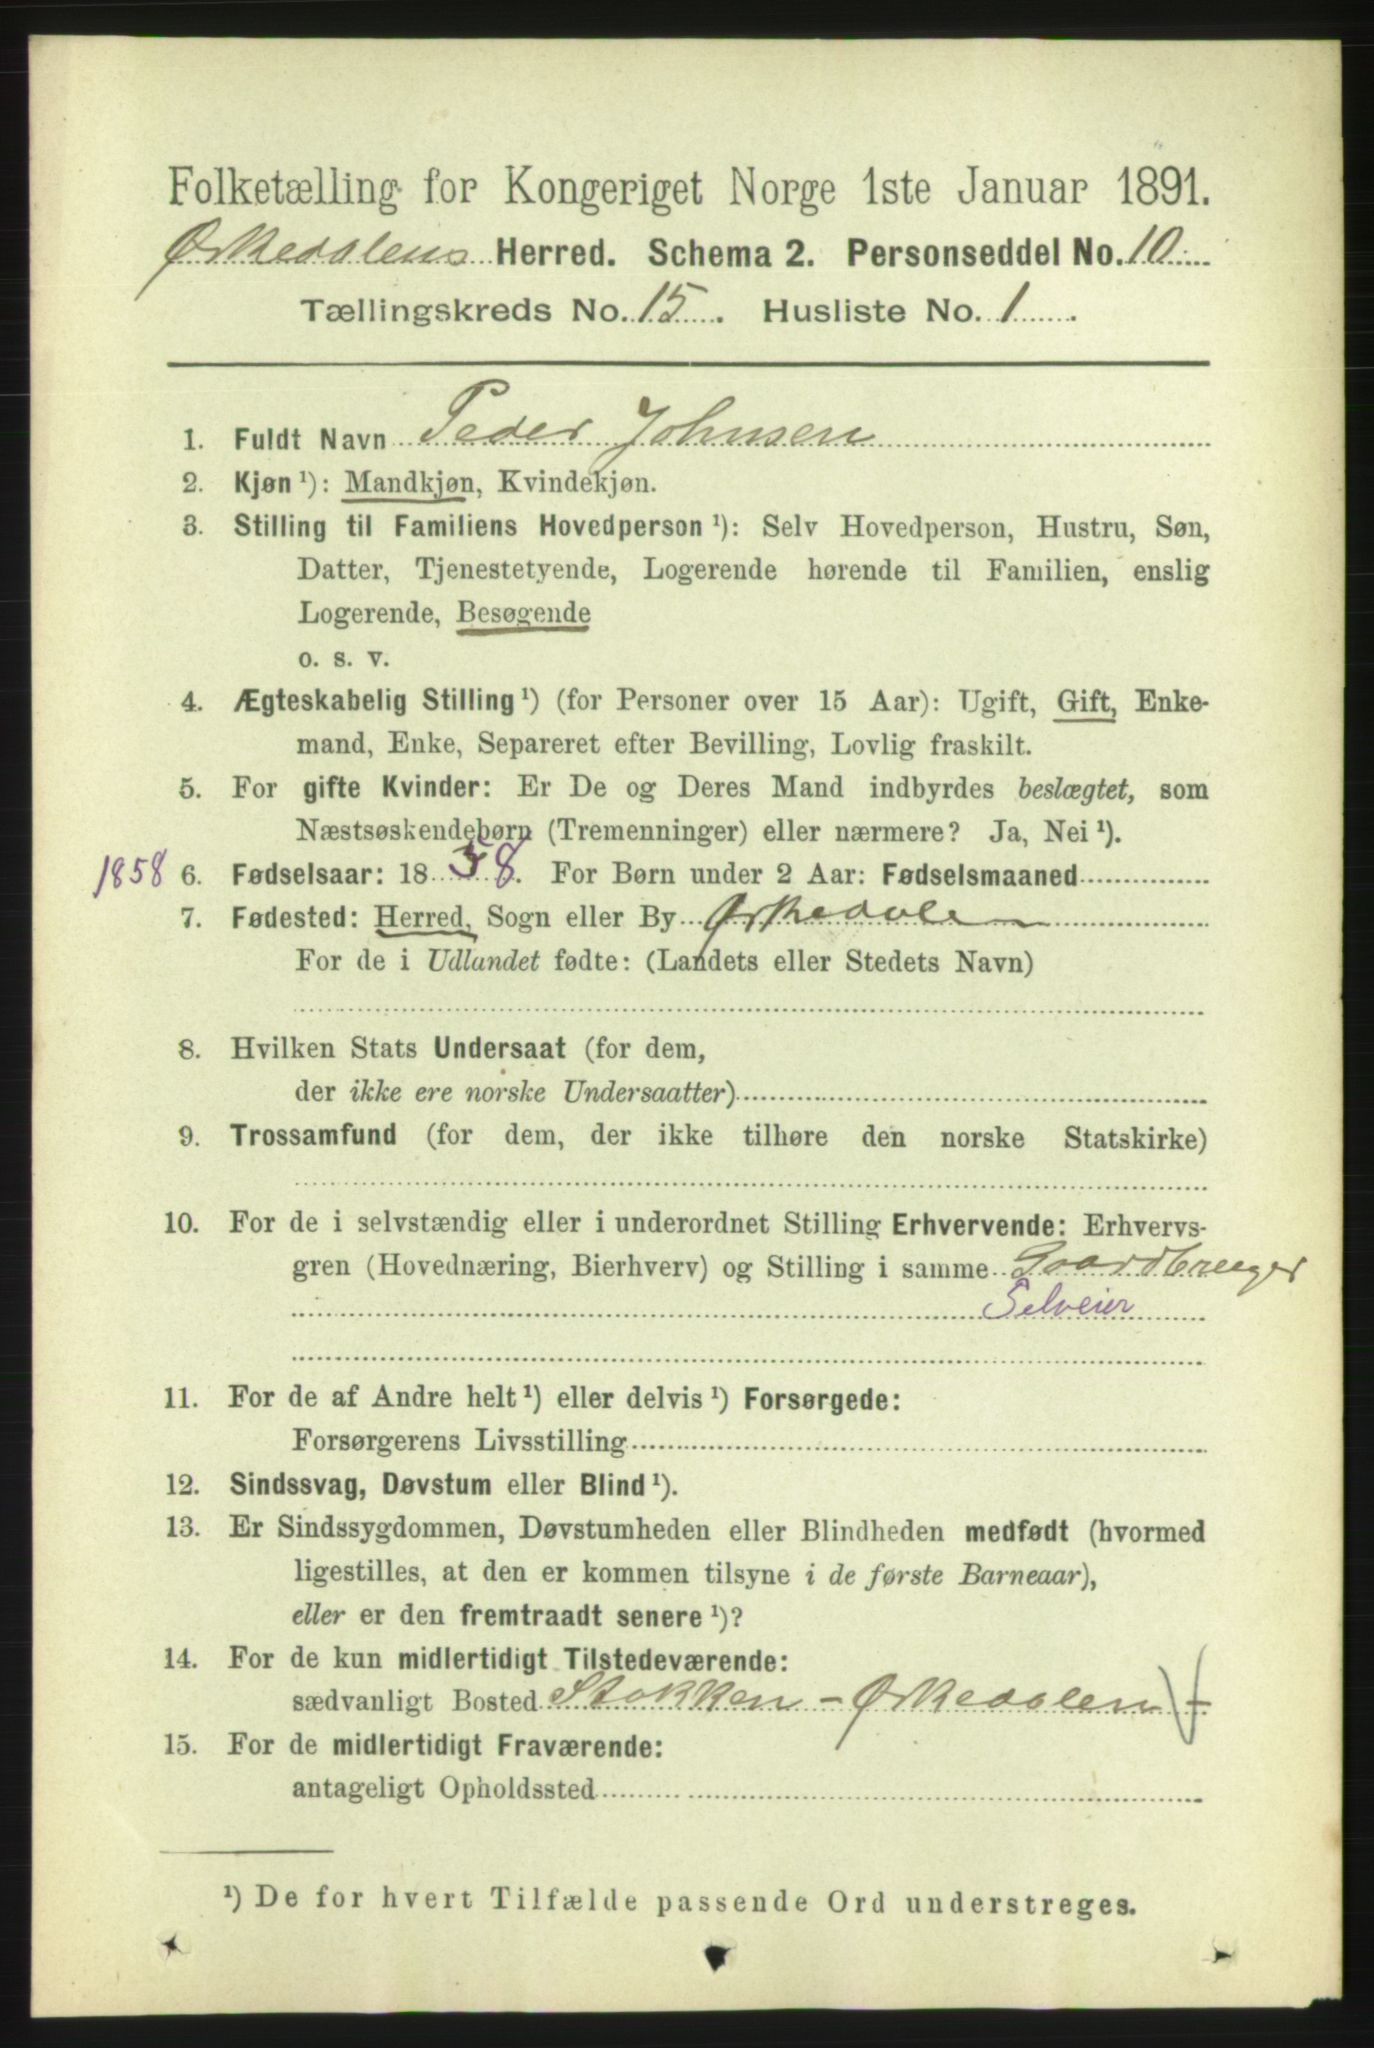 Folketælling for Kongeriget Norge 1ste Januar 1891.
Ørkedalens Herred. Schema 2. Personseddel No. 10
Tællingskreds No. 15. Husliste No. 1.
1. Fuldt Navn Peder Johnsen
2. Kjøn ¹): Mandkjøn, Kvindekjøn.
3. Stilling til Familiens Hovedperson ¹): Selv Hovedperson, Hustru, Søn,
Datter, Tjenestetyende, Logerende hørende til Familien, enslig
Logerende, Besøgende
o. s. v.
4. Ægteskabelig Stilling ¹) (for Personer over 15 Aar): Ugift, Gift, Enke-
mand, Enke, Separeret efter Bevilling, Lovlig fraskilt.
5. For gifte Kvinder: Er De og Deres Mand indbyrdes beslægtet, som
Næstsøskendebørn (Tremenninger) eller nærmere? Ja, Nei ¹).
1858 6. Fødselsaar: 1858. For Børn under 2 Aar: Fødselsmaaned
7. Fødested: Herred, Sogn eller By Ørkedalen
For de i Udlandet fødte: (Landets eller Stedets Navn)
8. Hvilken Stats Undersaat (for dem,
der ikke ere norske Undersaatter)
9. Trossamfund (for dem, der ikke tilhøre den norske Statskirke)
10. For de i selvstændig eller i underordnet Stilling Erhvervende: Erhvervs-
gren (Hovednæring, Bierhverv) og Stilling i samme Gaardbruger
Selveier
11. For de af Andre helt ¹) eller delvis ¹) Forsørgede:
Forsørgerens Livsstilling
12. Sindssvag, Døvstum eller Blind ¹).
13. Er Sindssygdommen, Døvstumheden eller Blindheden medfødt (hvormed
ligestilles, at den er kommen tilsyne i de første Barneaar),
eller er den fremtraadt senere ¹)?
14. For de kun midlertidigt Tilstedeværende:
sædvanligt Bosted Stokken - Ørkedalen -
15. For de midlertidigt Fraværende:
antageligt Opholdssted
¹) De for hvert Tilfælde passende Ord understreges.